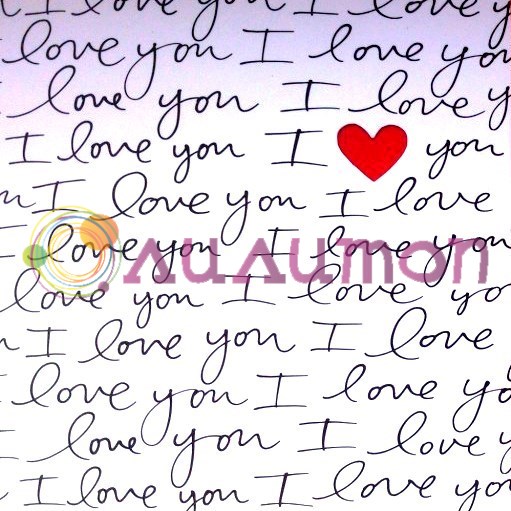 I love you I love you
I love you I love you
I love you I love y
I love you I you
n I love you I love
I love you I love you
love you I love yo
I love you I love
I love you I love yo
I love you I love y
I love you I love you
AUAUMON